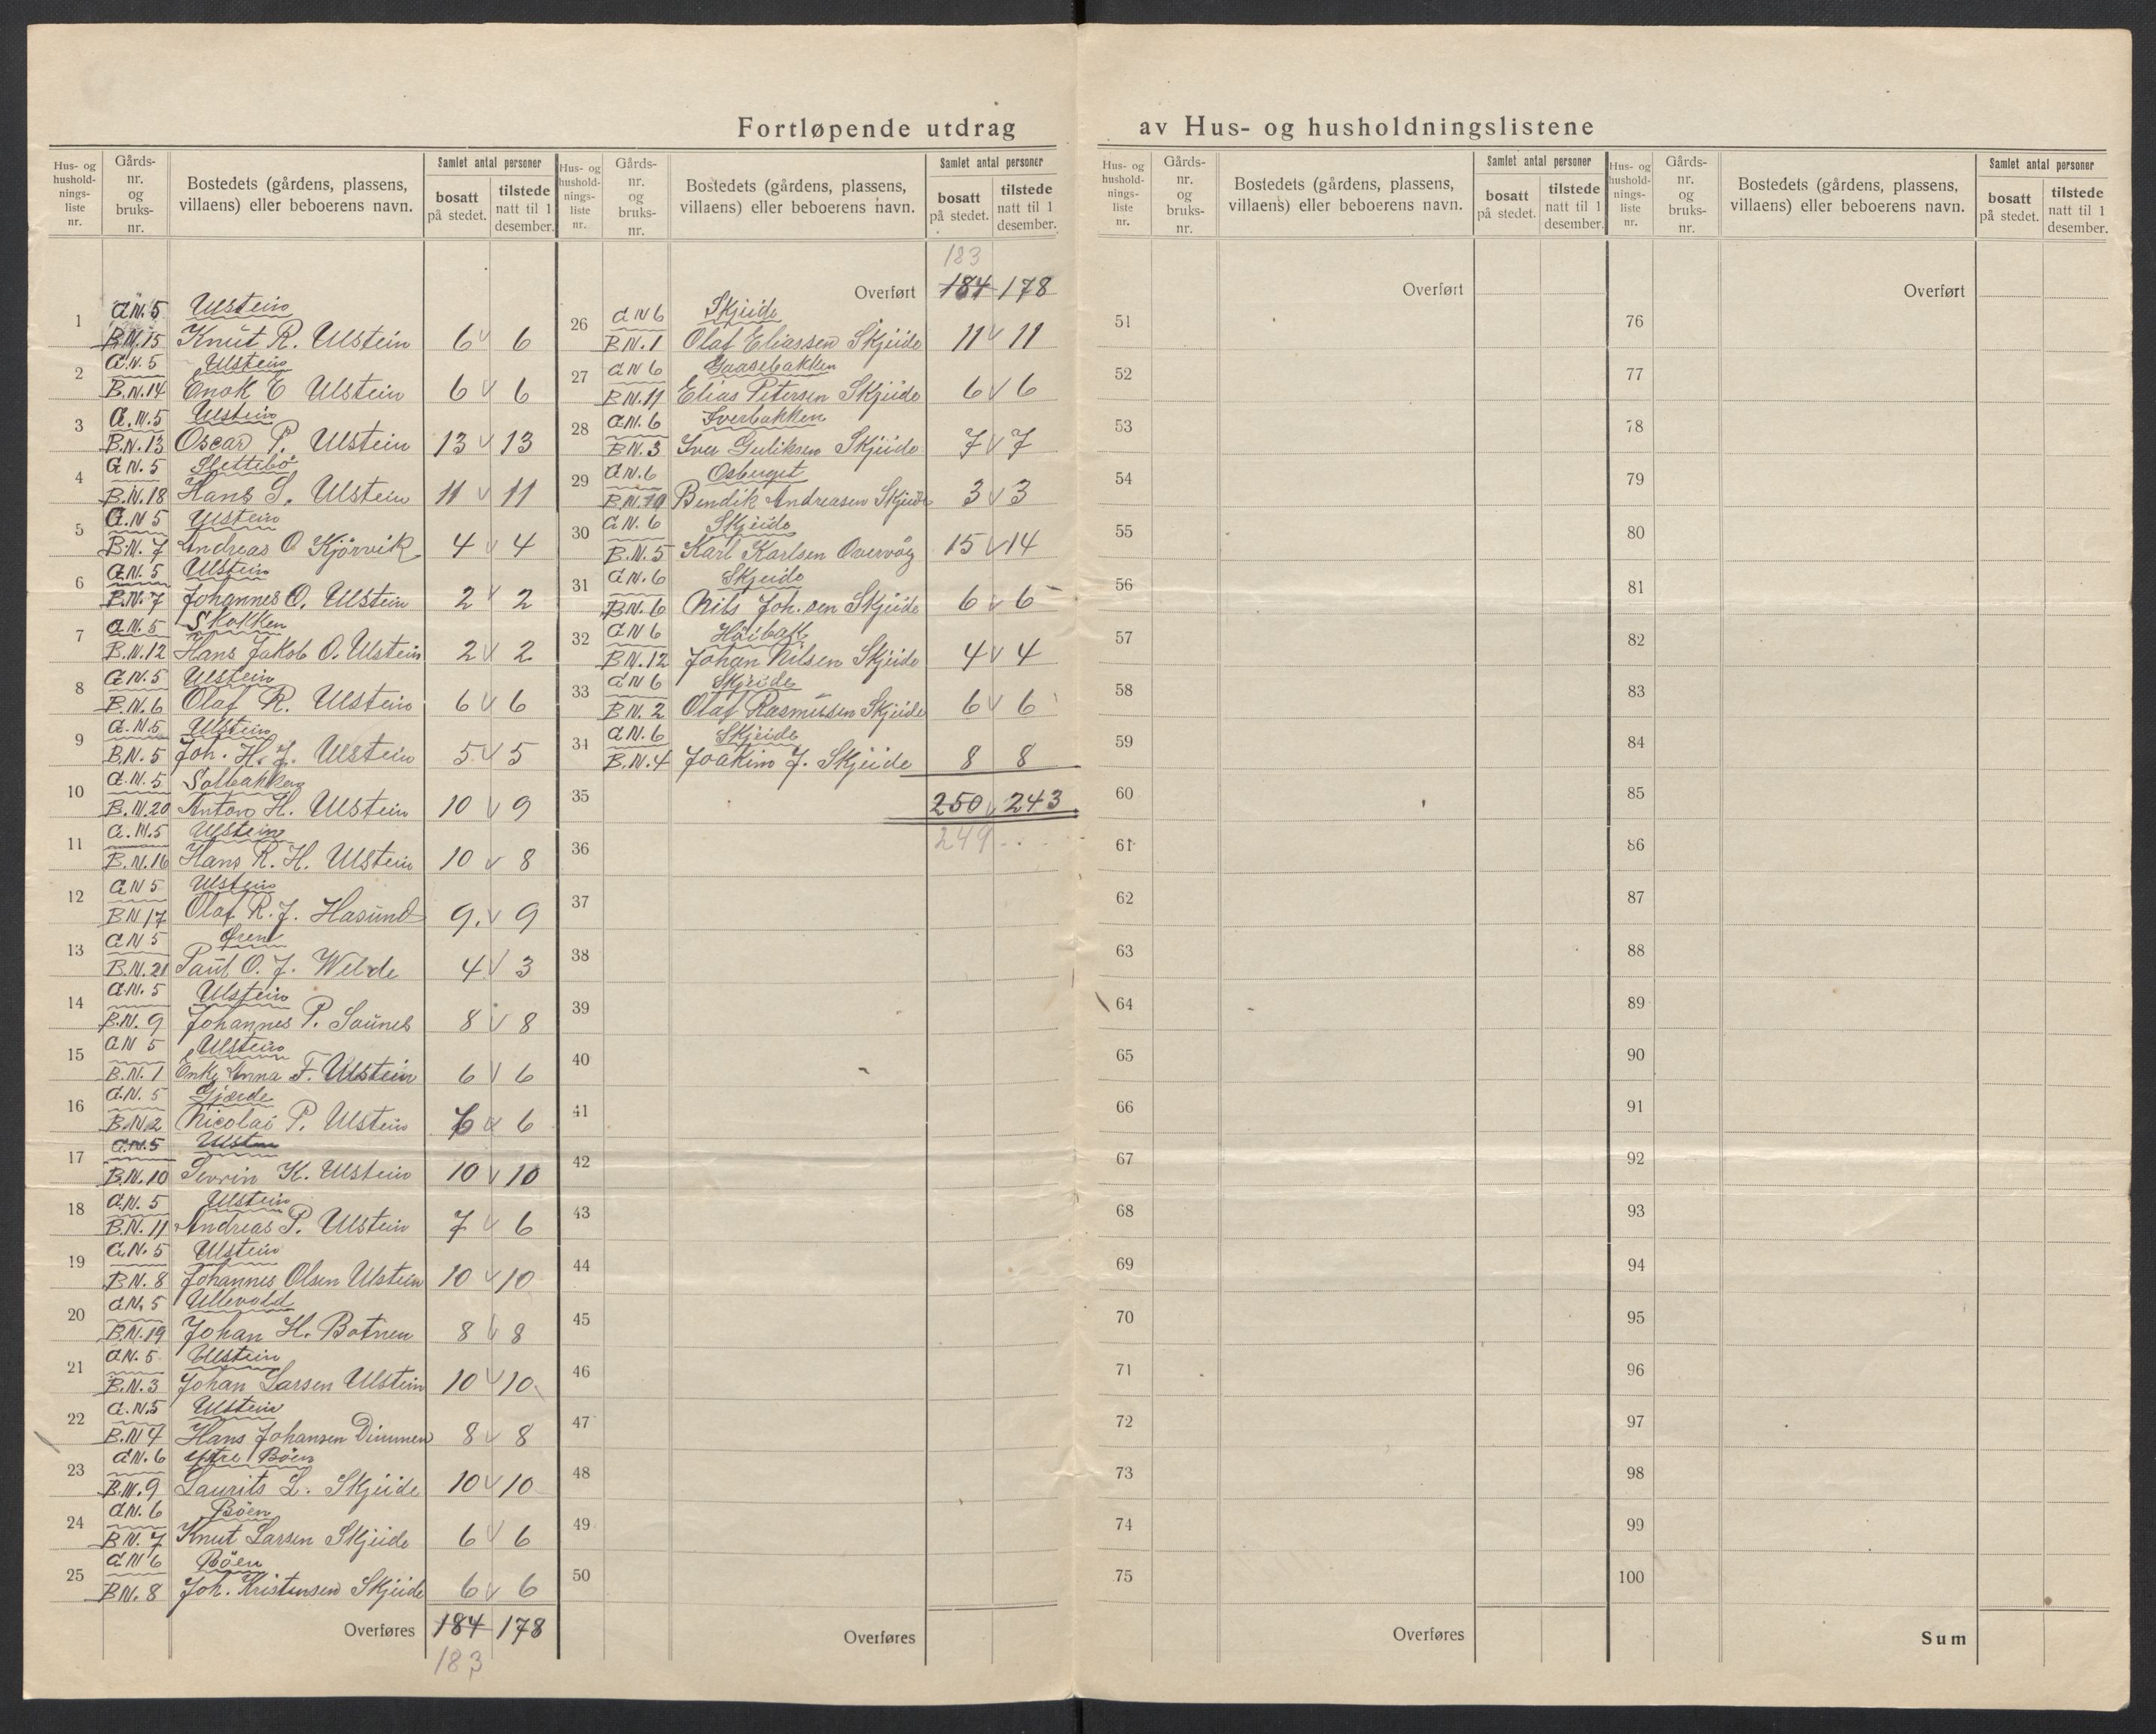 Fortløpende utdrag av Hus- og husholdningslistene
Hus- og husholdnings-liste nr. | Gårds-nr. og bruks-nr. | Bostedets (gårdens, plassens, villaens) eller beboerens navn. | Samlet antal personer | bosatt på stedet. | tilstede natt til 1 desember.
1 G.N. 5 Ulstein
B.N. 15 Knut R. Ulstein 6 v 6
2 G.N. 5 Ulstein
B.N. 14 Enok E Ulstein 6 v 6
3 G.N. 5 Ulstein
B.N. 13 Oscar P. Ulstein 13 v 13
4 G.N. 5 Slettebö
B.N. 18 Hans S. Ulstein 11 v 11
5 G.N 5 Ulstein
B.N. 7 Andreas O Kjörvik 4 v 4
6 G.N. 5 Ulstein
B.N. 7 Johannes O. Ulstein 2 v 2
7 G.N. 5 Skokken
B.N. 12 Hans Jakob O. Ulstein 2 v 2
8 G.N. 5 Ulstein
B.N. 6 Olaf R. Ulstein 6 v 6
9 G.N. 5 Ulstein
B.N. 5 Joh. H. J. Ulstein 5 v 5
10 G.N. 5 Solbakken
B.N. 20 Anton H. Ulstein 10 v 9
11 G.N. 5 Ulstein
B.N. 16 Hans R. H. Ulstein 10 v 8
12 G.N 5 Ulstein
B.N 17 Olaf R. J. Hasund 9. v 9
13 G.N 5
B.N. 21 Paul O. J. Welde 4 v 3
14 G.N. 5 Ulstein
B.N. 9 Johannes P. Saunes 8 v 8
15 G.N 5 Ulstein
B.N. 1 Enke Anna F. Ulstein 6 v 6
16 G.N. 5 Gjærde
B.N. 2 Nicolai P. Ulstein v 6
17 G.N. 5 Ulstein
B.N. 10 Sevrin K. Ulstein 10 v 10
18 G.N. 5 Ulstein
B.N. 11 Andreas P. Ulstein 7 v 6
19 G.N. 5 Ulstein
B.N. 8 Johannes Olsen Ulstein 10 v 10
20 G.N. 5 Ullevold
B.N. 19 Johan H. Botnen 8 v 8
21 G.N. 5 Ulstein
B.N. 3 Johan Larsen Ulstein 10 v 10
22 G.N. 5 Ulstein
B.N 4 Hans Johansen Dimmen 8 v 8
23 G.N. 6 Ytre Böen
B.N. 9 Laurits L. Skjeide 10 v 10
24 G.N. 6 Böen
B.N. 7 Knut Larsen Skjeide 6 v 6
25 G.N 6 Böen
B.N. 8 Joh. Kristensen Skjeide 6 v 6
Overføres 184 178
183
Hus- og husholdnings-liste nr. | Gårds-nr. og bruks-nr. | Bostedets (gårdens, plassens, villaens) eller beboerens navn. | Samlet antal personer | bosatt på stedet. | tilstede natt til 1 desember.
183
Overført 184 178
26 G.N 6 Skjeide
B.N. 1 Olaf Eliassen Skjeide 11 v 11
27 G.N 6 Gaasebakken
B.N. 11 Elias Petersen Skjeide 6 v 6
28 G.N. 6 Iverbakken
B.N. 3 Iver Guliksen Skjeide 7 v 7
29 G.N. 6 Osberget
B.N. 10 Bendik Andreasen Skjeide 3 v 3
30 G.N. 6 Skjeide
B.N. 5 Karl Karlsen Overvåg 15 v 14
31 G.N. 6 Skjeide
B.N. 6 Nils Joh.sen Skjeide 6 v 6
32 G.N 6 Höibakk
B.N. 12 Johan Nilsen Skjeide 4 v 4
33 G.N 6 Skjeide
B.N. 2 Olaf Rasmussen Skjeide 6 v 6
34 G.N. 6 Skjeide
B.N. 4 Joakim J. Skjeide 8 8
35 250 v 243
36 249
37
38
39
40
41
42
43
44
45
46
47
48
49
50
Overføres
Hus- og husholdnings-liste nr. | Gårds-nr. og bruks-nr. | Bostedets (gårdens, plassens, villaens) eller beboerens navn. | Samlet antal personer | bosatt på stedet. | tilstede natt til 1 desember.
Overført
51
52
53
54
55
56
57
58
59
60
61
62
63
64
65
66
67
68
69
70
71
72
73
74
75
Overføres
Hus- og husholdnings-liste nr. | Gårds-nr. og bruks-nr. | Bostedets (gårdens, plassens, villaens) eller beboerens navn. | Samlet antal personer | bosatt på stedet. | tilstede natt til 1 desember.
Overført
76
77
78
79
80
81
82
83
84
85
86
87
88
89
90
91
92
93
94
95
96
97
98
99
100
Sum